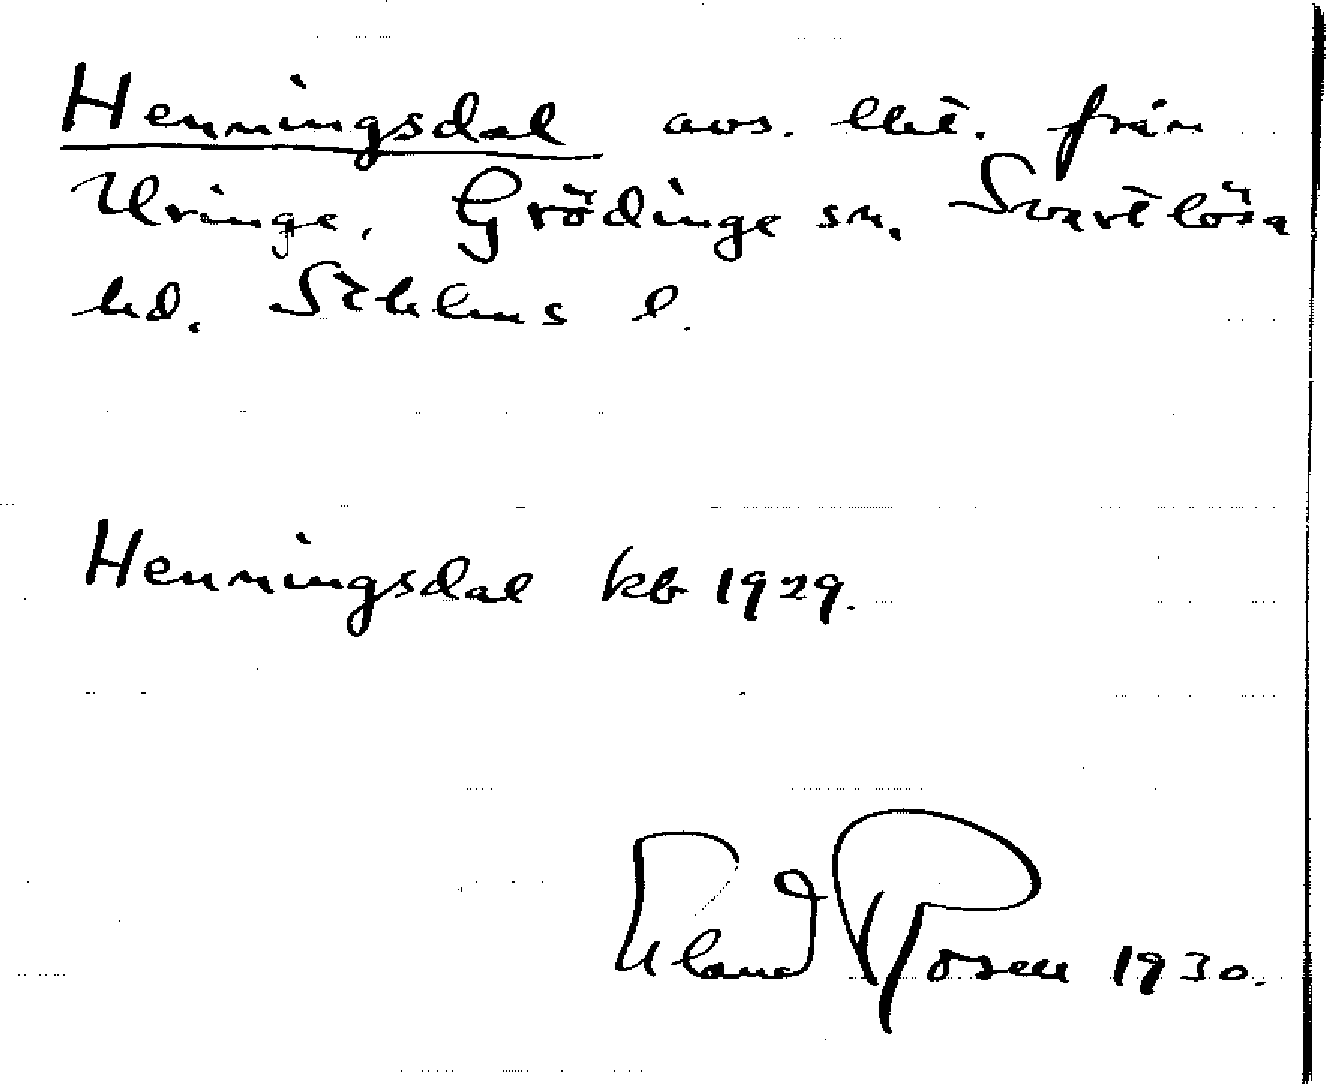 Henningsdal avs. lht. från
Uringe, Grödinge sn, Svartlösa
hd. Sthlms l.
Henningsdal kb 1929.
Rland Rosen 1930.